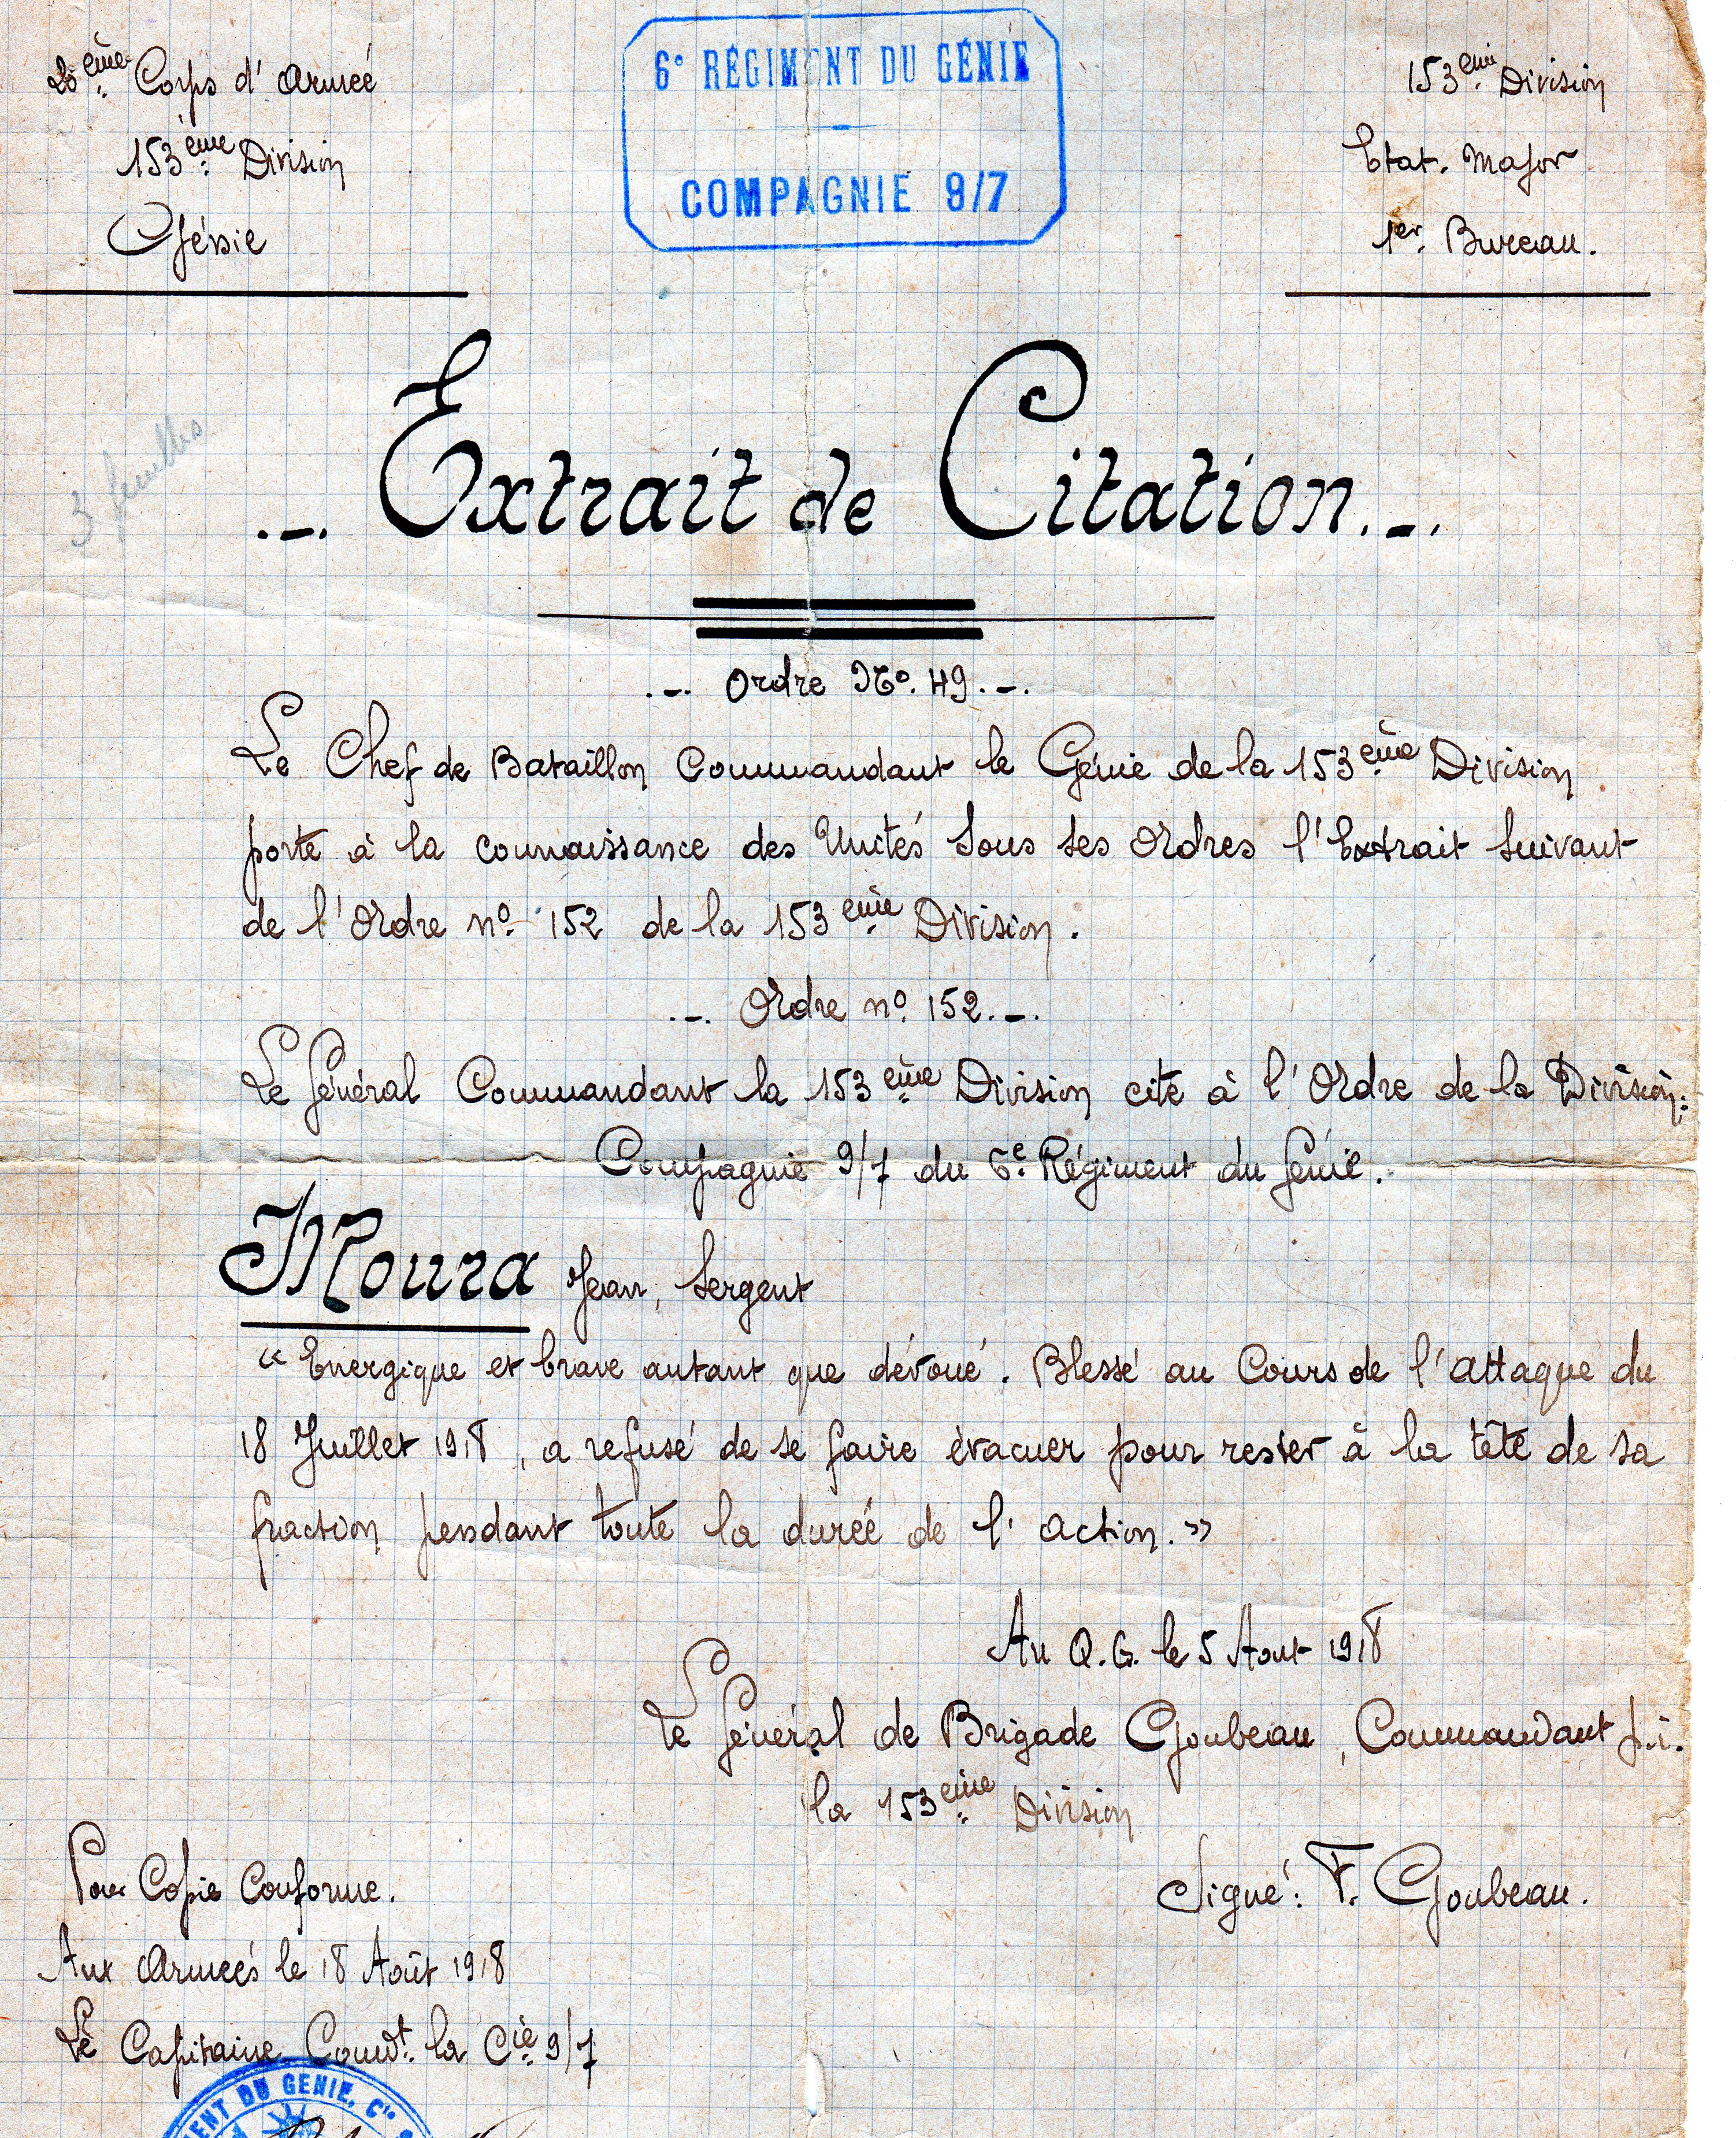 20ème Corps d'Armée
153ème Division
Génie
6e RÉGIMENT DU GÉNIE
COMPAGNIE 9/7
153ème Division
Etat. Major
1er. Bureau.
3 feuilles
.-. Extrait de Citation.-.
.-. Ordre No. 49.-.
Le Chef de Bataillon Commandant le Génie de la 153ème Division
porte à la connaissance des Unités sous ses ordres l'Extrait suivant
de l'Ordre no. 152 de la 153ème Division.
.-. Ordre no. 152.-.
Le Général Commandant la 153ème Division cite à l'Ordre de la Division:
Compagnie 9/7 du 6e. Régiment du Génie.
Moura Jean, Sergent
« Energique et brave autant que dévoué. Blessé au Cours de l'attaque du
18 Juillet 1918, a refusé de se faire évacuer pour rester à la tête de sa
fraction pendant toute la durée de l'action. »
Au Q.G. le 5 Aout 1918
Le Général de Brigade Goubeau, Commandant p.i.
la 153ème Division
Signé: F. Goubeau.
Pour Copie Conforme.
Aux Armées le 18 Août 1918
Le Capitaine Comdt. la Cie 9/7
MENT DU GENIE, Cie